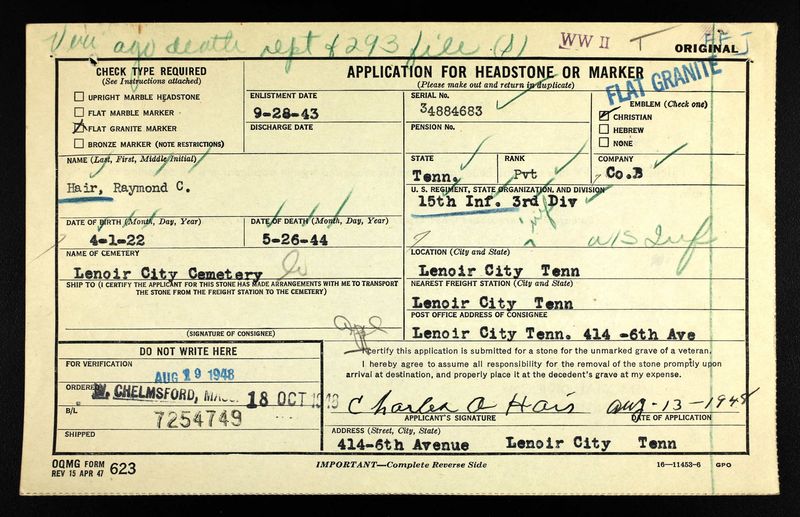 Veri ago death rept & 293 file (S)
WW II T
ORIGINAL
CHECK TYPE REQUIRED
(See Instructions attached)
UPRIGHT MARBLE HEADSTONE
FLAT MARBLE MARKER
FLAT GRANITE MARKER
BRONZE MARKER (NOTE RESTRICTIONS)
APPLICATION FOR HEADSTONE OR MARKER
(Please make out and return in duplicate)
FLAT GRANITE
ENLISTMENT DATE
9-28-43
DISCHARGE DATE
SERIAL No.
34884683
PENSION No.
EMBLEM (Check one)
CHRISTIAN
HEBREW
NONE
NAME (Last, First, Middle Initial)
Hair, Raymond C.
STATE
Tenn.
RANK
Pvt
COMPANY
Co.B
U. S. REGIMENT, STATE ORGANIZATION, AND DIVISION
15th Inf. 3rd Div
inf
DATE OF BIRTH (Month, Day, Year)
4-1-22
DATE OF DEATH (Month, Day, Year)
5-26-44
NAME OF CEMETERY
Lenoir City Cemetery
LOCATION (City and State)
Lenoir City Tenn
SHIP TO (I CERTIFY THE APPLICANT FOR THIS STONE HAS MADE ARRANGEMENTS WITH ME TO TRANSPORT THE STONE FROM THE FREIGHT STATION TO THE CEMETERY)
NEAREST FREIGHT STATION (City and State)
Lenoir City Tenn
(SIGNATURE OF CONSIGNEE)
POST OFFICE ADDRESS OF CONSIGNEE
Lenoir City Tenn. 414 -6th Ave
DO NOT WRITE HERE
FOR VERIFICATION
AUG 19 1948
ORDERED
W. CHELMSFORD, MASS. 18 OCT 1948
B/L
7254749
SHIPPED
Appl
I certify this application is submitted for a stone for the unmarked grave of a veteran.
I hereby agree to assume all responsibility for the removal of the stone promptly upon
arrival at destination, and properly place it at the decedent's grave at my expense.
Charles O Hair aug-13-1948
APPLICANT'S SIGNATURE
DATE OF APPLICATION
ADDRESS (Street, City, State)
414-6th Avenue Lenoir City Tenn
OQMG FORM
REV 15 APR 47 623
IMPORTANT—Complete Reverse Side
16—11453-6 GPO